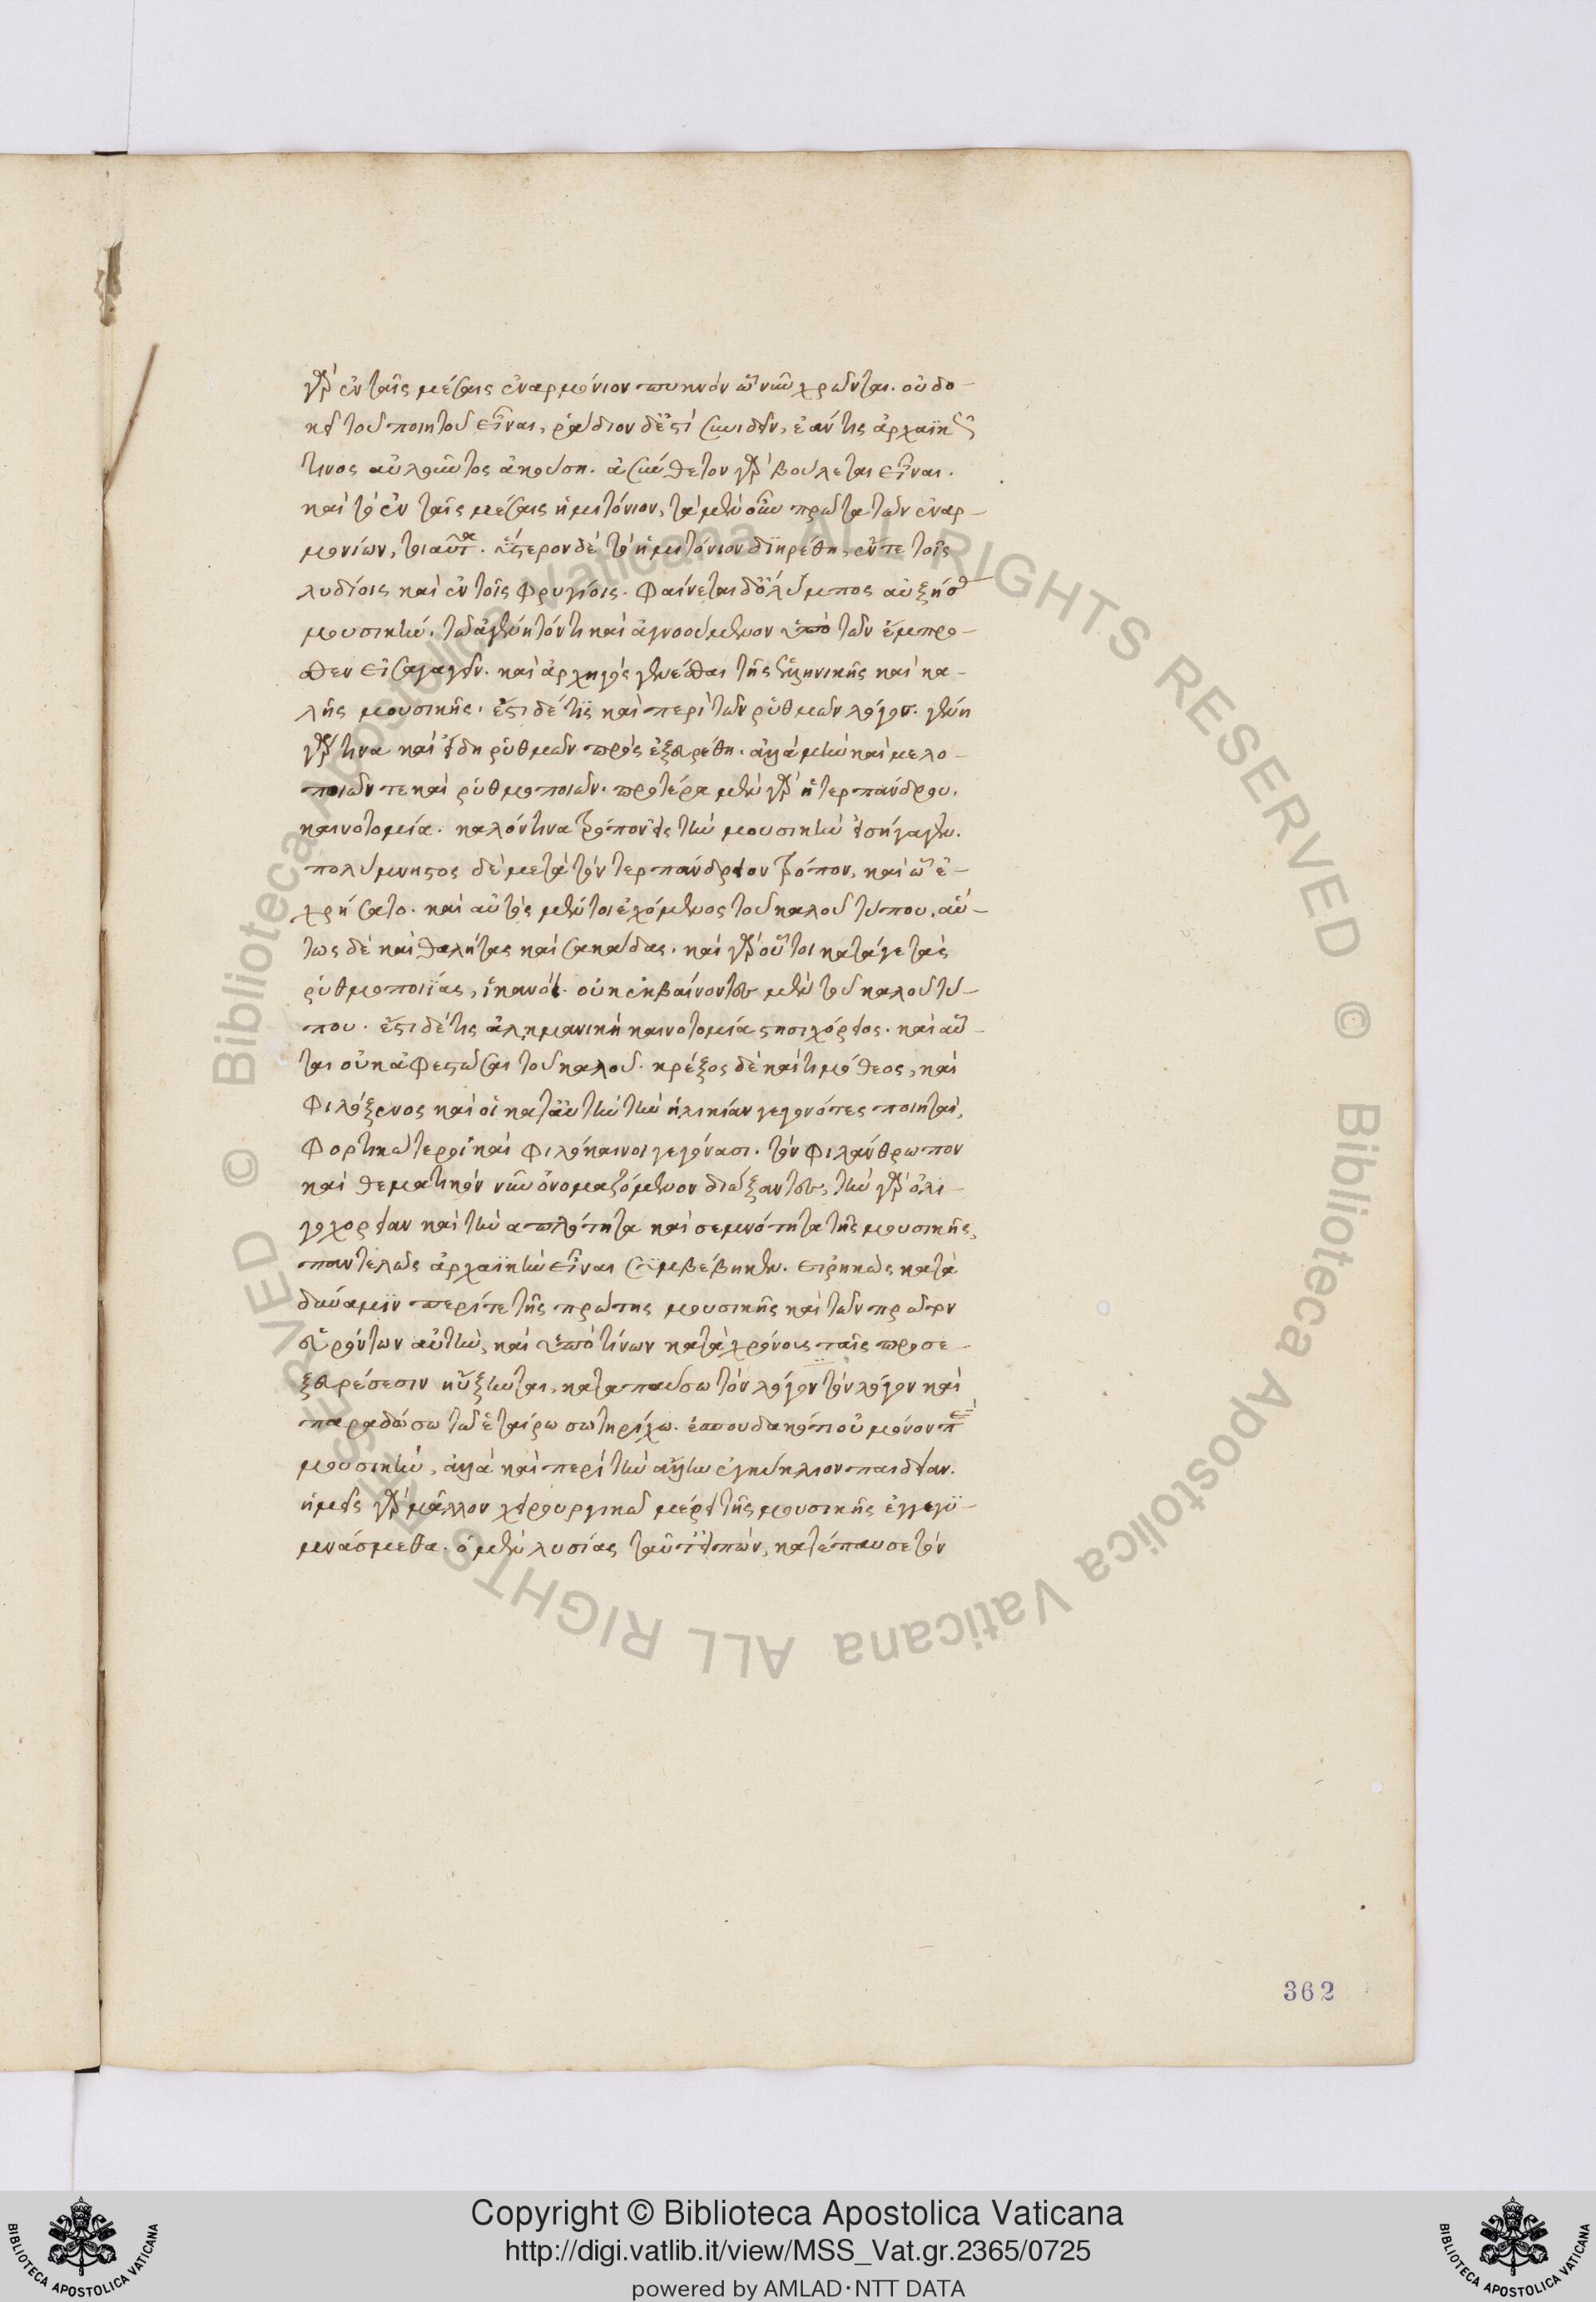 γὰρ ἐν ταῖς μέσαις ἐναρμόνιον πυκνὸν ὧ νῦν χρῶνται. οὐ δο-
κεῖ τοῦ ποιητοῦ εἶναι, ῥάδιον δέ ἐστι συνιδεῖν, ἐάν τις ἀρχαϊκῶς
τινος αὐλοῦντος ἀκούση. ἀσύνθετον γὰρ βούλεται εἶναι.
καὶ τὸ ἐν ταῖς μέσαις ἡμιτόνιον, τὰ μὲν οὖν πρῶτα τῶν ἐναρ-
μονίων, τοιαῦτα. ὕστερον δὲ τὸ ἡμιτόνιον διηρέθη, ἔν τε τοῖς
λυδίοις καὶ ἐν τοῖς φρυγίοις. φαίνεται δ' ὄλυμπος αὐξήσας
μουσικὴν. τῶ ἀγένητόν τι καὶ ἀγνοούμενον ὑπὸ τῶν ἔμπρο-
σθεν εἰσαγαγεῖν. καὶ ἀρχηγὸς γενέσθαι τῆς ἑλληνικῆς καὶ κα-
λῆς μουσικῆς. ἔστι δέ τις καὶ περὶ τῶν ῥυθμῶν λόγος. γένη
γάρ τινα καὶ εἴδη ῥυθμῶν προς ἐξευρέθη. ἀλλὰ μὴν καὶ μελο-
ποιῶν τε καὶ ῥυθμοποιῶν. προτέρα μὲν γὰρ ἡ τερπάνδρου.
καινοτομία. καλόν τινα τρόπον εἰς τὴν μουσικὴν εἰσήγαγεν.
πολύμνηστος δὲ μετὰ τὸν τερπάνδρειον τρόπον, καὶ ὧ ἐ-
χρήσατο. καὶ αὐτὸς μέντοι ἐχόμενος τοῦ καλοῦ τύπου. αὔ-
τως δὲ καὶ θαλήτας καὶ σακάδας. καὶ γὰρ οὗτοι κατά γε τὰς
ῥυθμοποιΐας, ἱκανοί. οὐκ ἐκβαίνοντες μὲν τοῦ καλοῦ τύ-
που. ἔστι δέ τις ἀλκμανικὴ καινοτομία στησιχόρειος. καὶ αὗ-
ται οὐκ ἀφεστῶσαι τοῦ καλοῦ. κρέξος δὲ καὶ τιμόθεος, καὶ
Φιλόξενος καὶ οἱ κατ' αὐτὴν τὴν ἡλικίαν γεγονότες ποιηταί,
Φορτικώτεροι καὶ φιλόκαινοι γεγόνασι. τὸν φιλάνθρωπον
καὶ θεματικὸν νῦν ὀνομαζόμενον διώξαντες, τὴν γὰρ ὀλι-
γοχορδίαν καὶ τὴν απλότητα καὶ σεμνότητα τῆς μουσικῆς,
παντελῶς ἀρχαϊκὴν εἶναι συμβέβηκεν. εἰρηκὼς κατὰ
δύναμιν περί τε τῆς πρώτης μουσικῆς καὶ τῶν πρῶτον
εὑρόντων αὐτὴν, καὶ ὑπὸ τίνων κατὰ χρόνους ταῖς προσε-
ξευρέσεσιν ηὔξηται, καταπαύσω τὸν λόγον τὸν λόγον καὶ
παραδώσω τῶ ἑταίρω σωτηρίχω. ἐσπουδακότι οὐ μόνον περὶ
μουσικὴν, ἀλλὰ καὶ περὶ τὴν ἄλλην ἐγκύκλιον παιδείαν.
ἡμεῖς γὰρ μᾶλλον χειρουργικῶ μέρει τῆς μουσικῆς ἐγγεγυ-
μνάσμεθα. ὁ μὲν λυσίας ταῦτ' εἰπὼν, κατέπαυσε τὸν
362